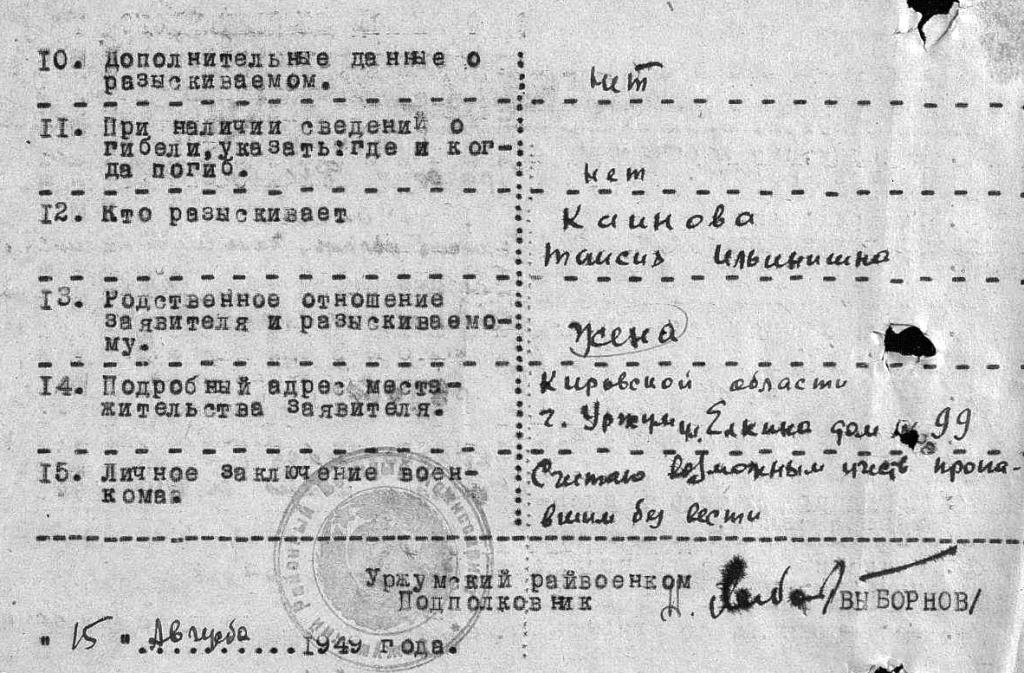 10. Дополнительные данные о
разыскиваемом.
нет
11. При наличии сведений о
гибели, указать: где и ког-
да погиб.
нет
12. Кто разыскивает
Каинова
Таисия Ильинишна
13. Родственное отношение
заявителя и разыскиваемо-
му.
Жена
14. Подробный адрес места-
жительства заявителя.
Кировской области
г. Уржум ул. Елкина дом № 99
15. Личное заключение воен-
кома:
Считаю возможным учесть пропа-
вшим без вести
Уржумский райвоенком
Подполковник
/ВЫБОРНОВ/
" 15 " Августа 1949 года.